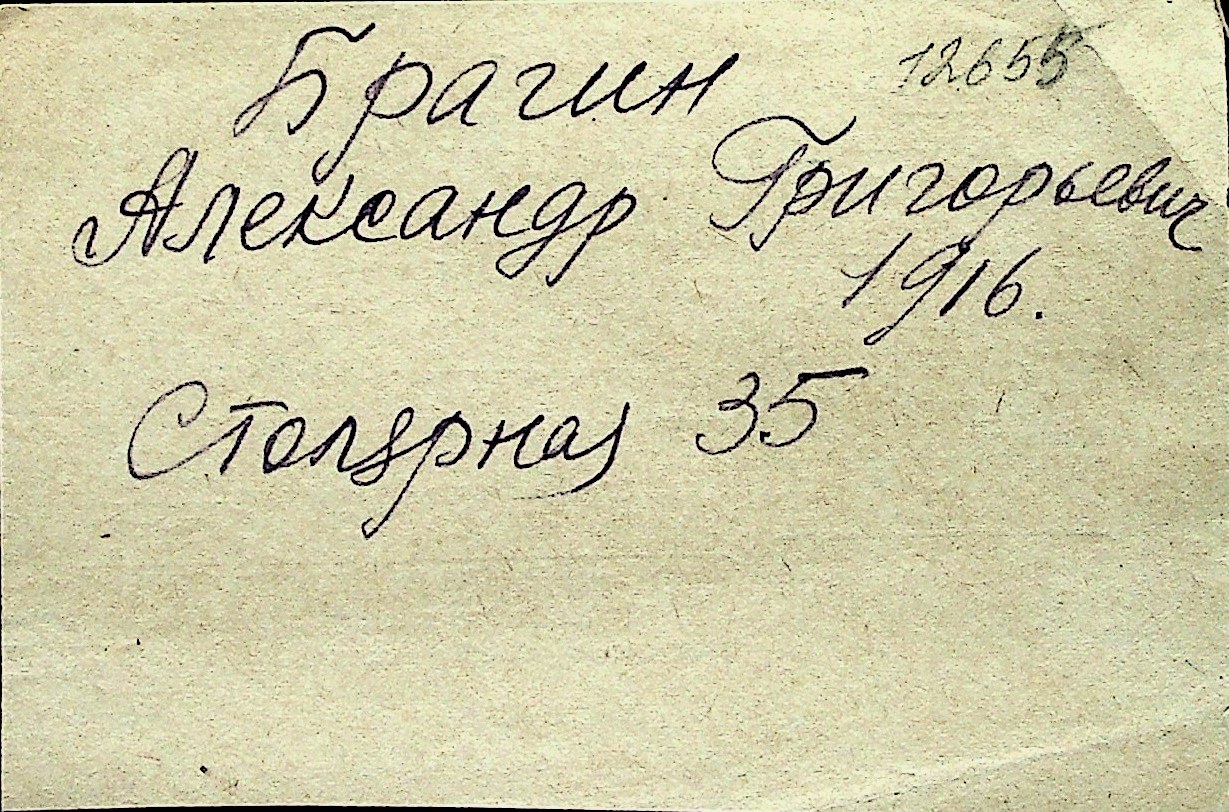 Брагин 12655
Александр Григорьевич
1916.
Столярная 35